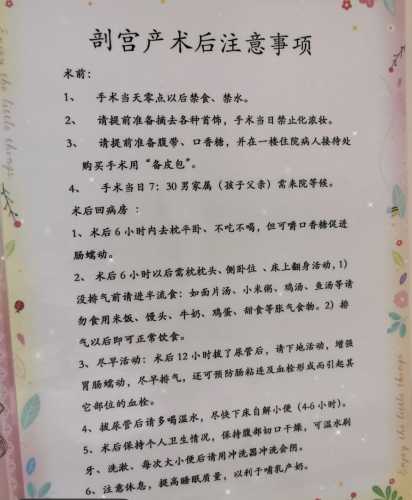 剖宫产术后注意事项
术前：
1、 手术当天零点以后禁食、禁水。
2、 请提前准备摘去各种首饰，手术当日禁止化浓妆。
3、 请提前准备腹带、口香糖，并在一楼住院病人接待处
购买手术用“备皮包”。
4、 手术当日7：30男家属（孩子父亲）需来院等候。
术后回病房：
1、术后6小时内去枕平卧、不吃不喝，但可嚼口香糖促进
肠蠕动。
2、术后6小时以后需枕枕头、侧卧位、床上翻身活动，1）
没排气前请进半流食：如面片汤、小米粥、鸡汤、鱼汤等请
勿食用米饭、馒头、牛奶、鸡蛋、甜食等胀气食物。2）排
气以后即可正常饮食。
3、尽早活动：术后12小时拔了尿管后，请下地活动，增强
胃肠蠕动，尽早排气，还可预防肠粘连及血栓形成而引起其
它部位的血栓。
4、拔尿管后请多喝温水，尽快下床自解小便（4-6小时）。
5、术后保持个人卫生情况，保持腹部切口干燥，可温水刷
牙、洗漱、每次大小便后请用冲洗器冲洗会阴。
6、注意休息，提高睡眠质量，以利于哺乳产奶。
Enjoy the little things
Enjoy the little things